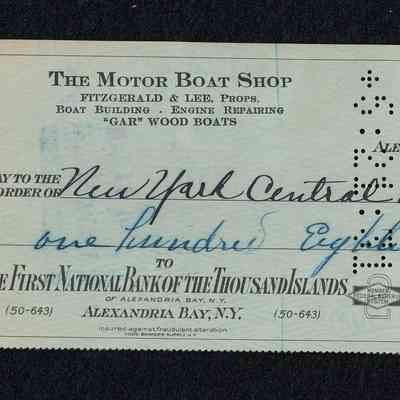 THE MOTOR BOAT SHOP
FITZGERALD & LEE, PROPS.
BOAT BUILDING . ENGINE REPAIRING
"GAR" WOOD BOATS
ALE
AY TO THE
ORDER OF New York Central
one hundred Eight
TO
E FIRST NATIONAL BANK OF THE THOUSAND ISLANDS
OF ALEXANDRIA BAY, N.Y.
(50-643) ALEXANDRIA BAY, N.Y. (50-643)
MEMBER
FEDERAL RESERVE
SYSTEM
insured against fraudulent alteration